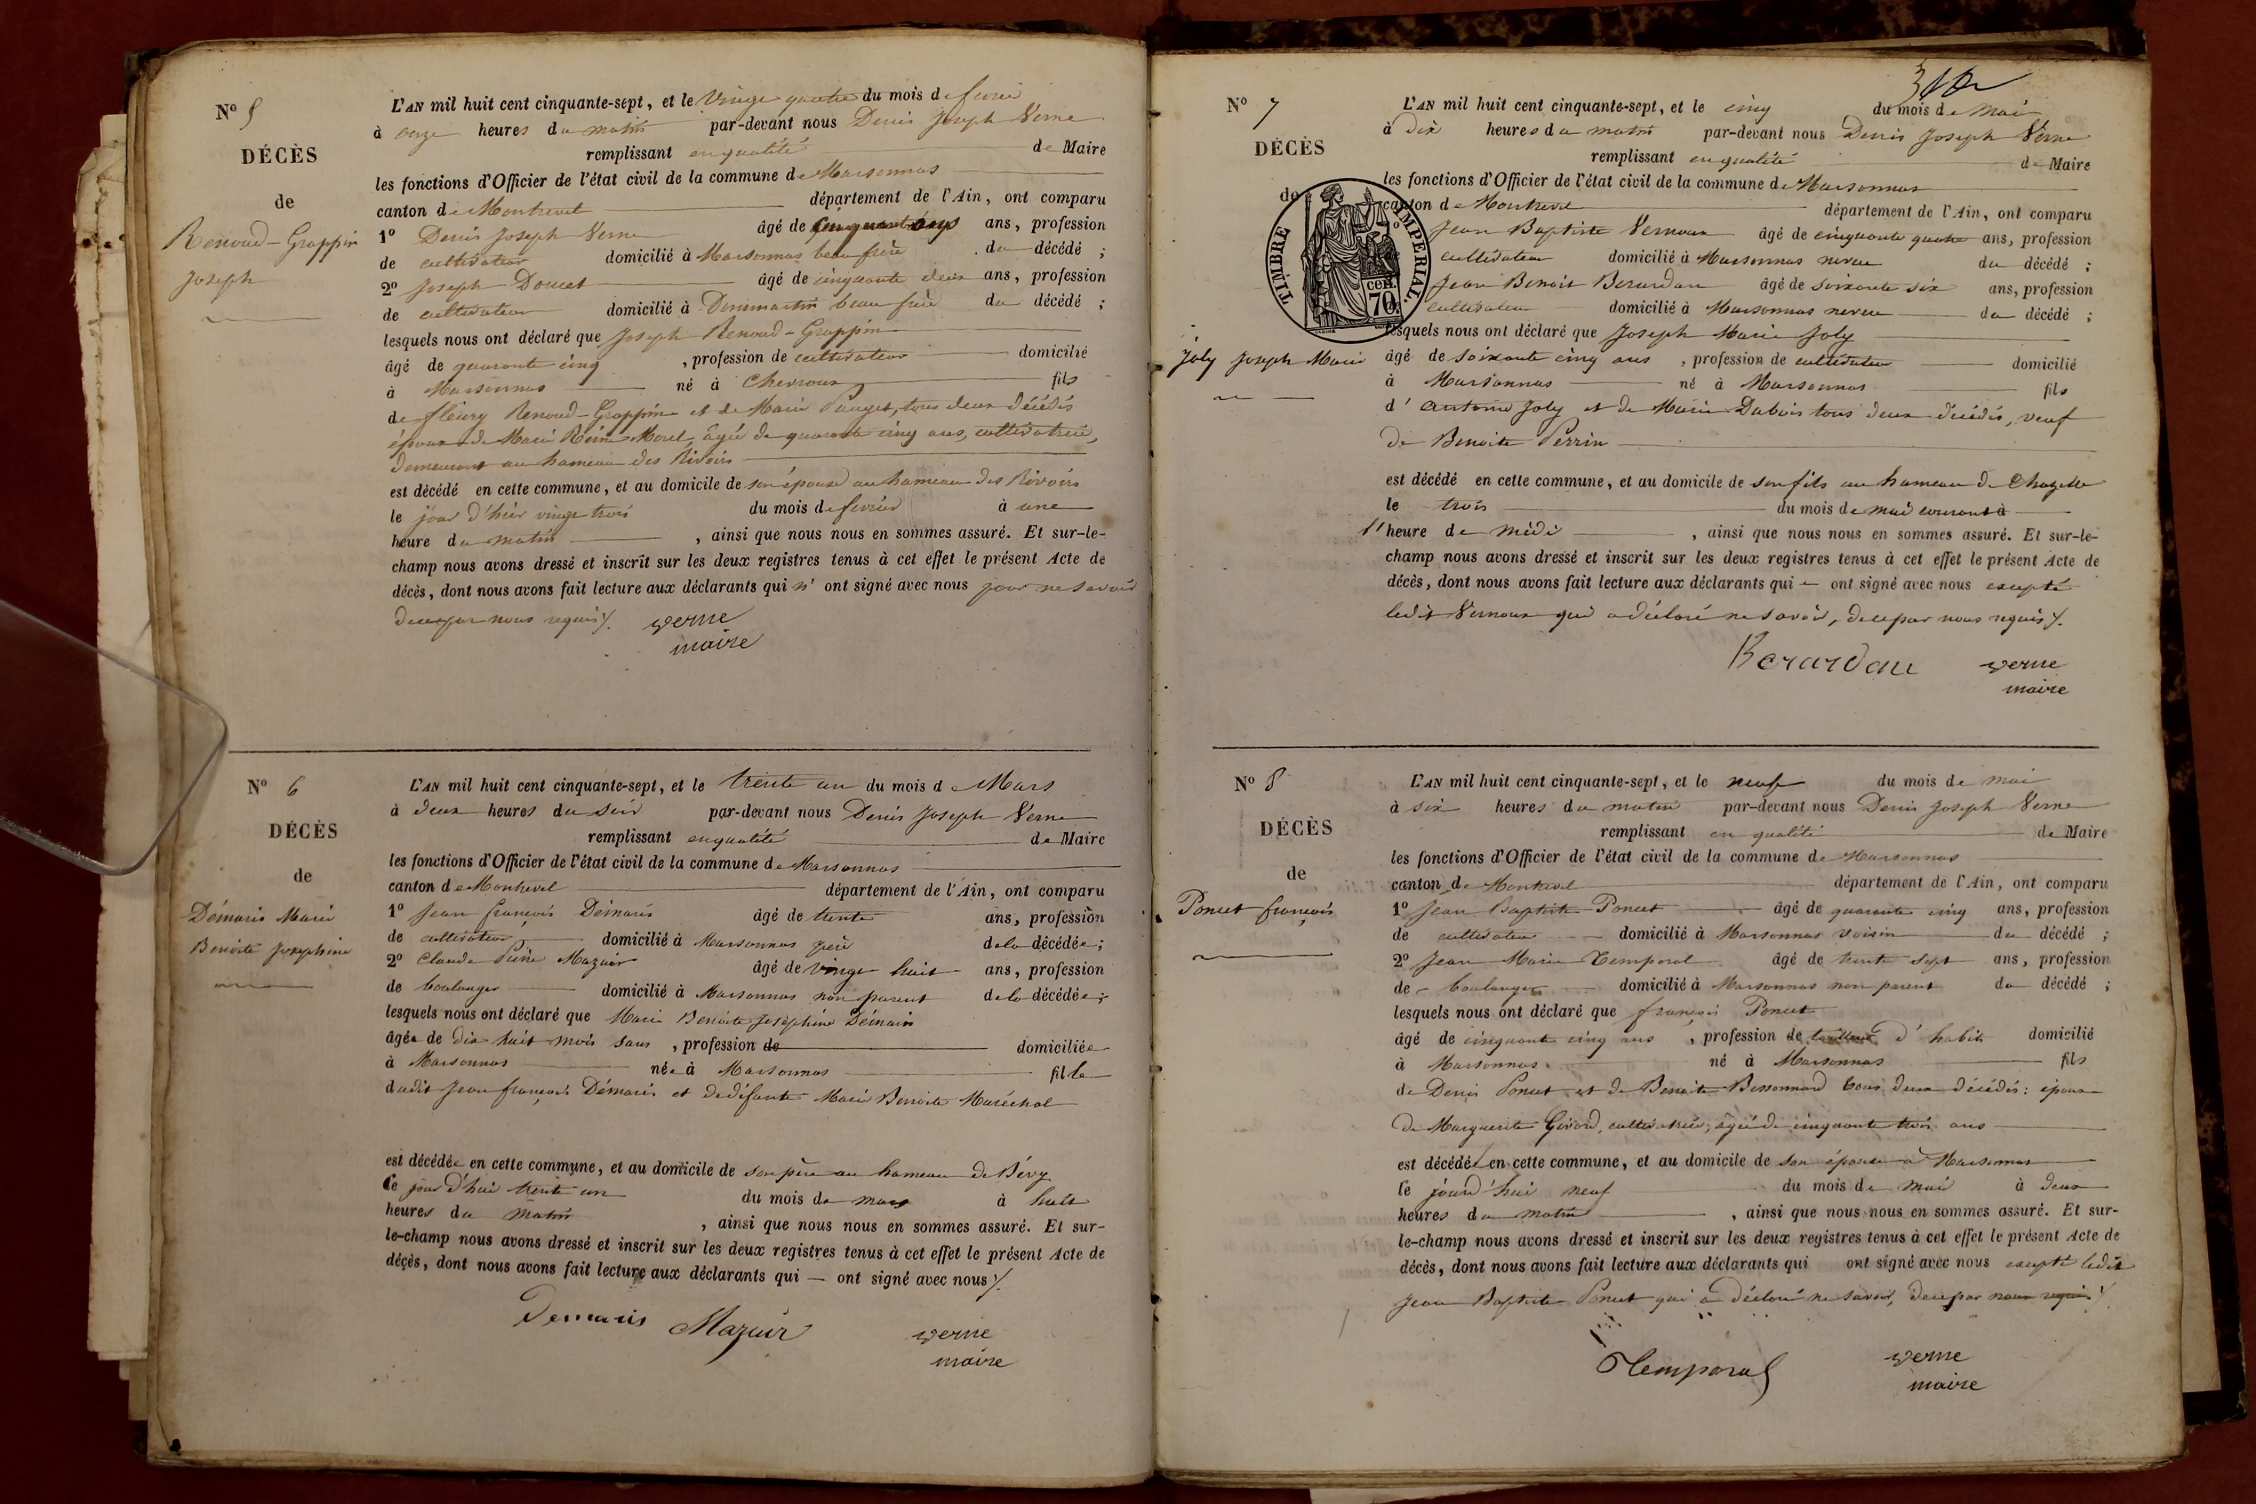 N° 5
DÉCÈS
de
Renoud-Grappin
Joseph
L'AN mil huit cent cinquante-sept, et le vingt quatre du mois de fevrier
à onze heures du matin par-devant nous Denis Joseph Verne
remplissant en qualité de Maire
les fonctions d'Officier de l'état civil de la commune de Marsonnas
canton de Montrevel département de l'Ain, ont comparu
1° Denis Joseph Verne âgé de cinquante ans, profession
de cultivateur domicilié à Marsonnas beau frère du décédé ;
2° Joseph Doucet âgé de cinquante deux ans, profession
de cultivateur domicilié à Dommartin beau frère du décédé ;
lesquels nous ont déclaré que Joseph Renoud-Grappin
âgé de quarante cinq , profession de cultivateur domicilié
à Marsonnas né à Chevroux fils
de fleury Renoud-Grappin et de Marie Pauget, tous deux décédés
époux de Marie Reine Morel, âgée de quarante cinq ans, cultivatrice,
demeurant au hameau des Rivoirs
est décédé en cette commune, et au domicile de son épouse au hameau des Rivoirs
le jour d'hier vingt trois du mois de fevrier à une
heure du matin , ainsi que nous nous en sommes assuré. Et sur-le-
champ nous avons dressé et inscrit sur les deux registres tenus à cet effet le présent Acte de
décès, dont nous avons fait lecture aux déclarants qui n' ont signé avec nous pour ne savoir
de ce par nous requis /.
verne
maire
N° 6
DÉCÈS
de
Démaris Marie
Benoite Josephine
L'AN mil huit cent cinquante-sept, et le trente un du mois de Mars
à deux heures du soir par-devant nous Denis Joseph Verne
remplissant en qualité de Maire
les fonctions d'Officier de l'état civil de la commune de Marsonnas
canton de Montrevel département de l'Ain, ont comparu
1° Jean françois Démaris âgé de trente ans, profession
de cultivateur domicilié à Marsonnas père de la décédée ;
2° Claude Pierre Mazuir âgé de vingt huit ans, profession
de boulanger domicilié à Marsonnas non parent de la décédée ;
lesquels nous ont déclaré que Marie Benoite Joséphine Démaris
âgée de dix huit mois sans , profession de domiciliée
à Marsonnas née à Marsonnas fille
dudit Jean françois Démaris et de défunte Marie Benoite Maréchal
est décédée en cette commune, et au domicile de son père au hameau de Bévy
Ce jour d'hui trente un du mois de mars à huit
heures du matin , ainsi que nous nous en sommes assuré. Et sur-
le-champ nous avons dressé et inscrit sur les deux registres tenus à cet effet le présent Acte de
décès, dont nous avons fait lecture aux déclarants qui — ont signé avec nous /.
Demaris Mazuir verne
maire
N° 7
DÉCÈS
de
Joly Joseph Marie
TIMBRE IMPERIAL
CEN.
70
L'AN mil huit cent cinquante-sept, et le cinq du mois de Mai
à dix heures du matin par-devant nous Denis Joseph Verne
remplissant en qualité de Maire
les fonctions d'Officier de l'état civil de la commune de Marsonnas
canton de Montrevel département de l'Ain, ont comparu
Jean Baptiste Vernoux âgé de cinquante quatre ans, profession
cultivateur domicilié à Marsonnas neveu du décédé ;
Jean Benoit Berardan âgé de soixante six ans, profession
cultivateur domicilié à Marsonnas neveu du décédé ;
lesquels nous ont déclaré que Joseph Marie Joly
âgé de soixante cinq ans , profession de cultivateur domicilié
à Marsonnas né à Marsonnas fils
d' Antoine Joly et de Marie Dubois tous deux décédés, veuf
de Benoite Perrin
est décédé en cette commune, et au domicile de son fils au hameau de Chazelle
le trois du mois de mai courant à
l'heure de midi , ainsi que nous nous en sommes assuré. Et sur-le-
champ nous avons dressé et inscrit sur les deux registres tenus à cet effet le présent Acte de
décès, dont nous avons fait lecture aux déclarants qui — ont signé avec nous excepté
ledit Vernoux qui a déclaré ne savoir, de ce par nous requis /.
Berardan verne
maire
N° 8
DÉCÈS
de
Poncet françois
L'AN mil huit cent cinquante-sept, et le neuf du mois de mai
à six heures du matin par-devant nous Denis Joseph Verne
remplissant en qualité de Maire
les fonctions d'Officier de l'état civil de la commune de Marsonnas
canton de Montrevel département de l'Ain, ont comparu
1° Jean Baptiste Poncet âgé de quarante cinq ans, profession
de cultivateur domicilié à Marsonnas voisin du décédé ;
2° Jean Marie Temporal âgé de trente sept ans, profession
de boulanger domicilié à Marsonnas non parent du décédé ;
lesquels nous ont déclaré que françois Poncet
âgé de cinquante cinq ans , profession de tailleur d' habits domicilié
à Marsonnas né à Marsonnas fils
de Denis Poncet et de Benoite Bessonnard tous deux décédés : époux
de Marguerite Girard, cultivatrice, âgée de cinquante trois ans
est décédé en cette commune, et au domicile de son épouse à Marsonnas
le jourd'hui neuf du mois de mai à deux
heures du matin , ainsi que nous nous en sommes assuré. Et sur-
le-champ nous avons dressé et inscrit sur les deux registres tenus à cet effet le présent Acte de
décès, dont nous avons fait lecture aux déclarants qui ont signé avec nous excepté ledit
Jean Baptiste Poncet qui a déclaré ne savoir, de ce par nous requis /.
Temporal verne
maire